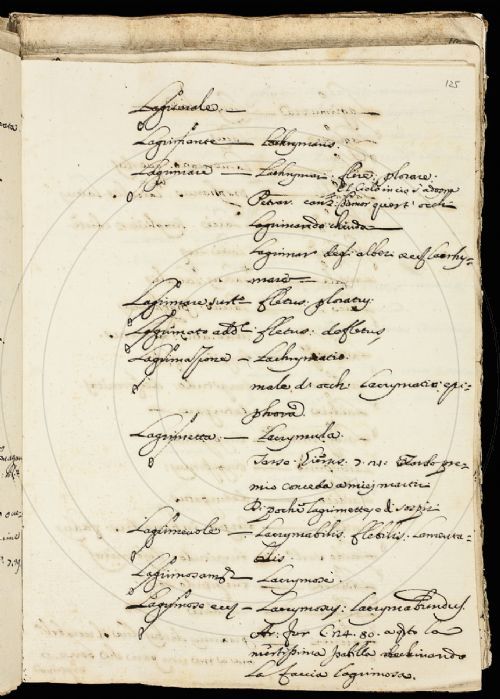 125
Lagrimale. —
Lagrimante — Lachrymans.
Lagrimare — Lachrymari. flere. plorare.
El Ciel o in cio s'adopra
Petrar. canz. Amor quest' occhi
lagrimando chiuda
Lagrimar degl' alberi
mare —
Lagrimare sust.o fletus. ploratus
Lagrimato add. fletus. defletus
Lagrimazione — Lachrymatio
male d'occhi. Lacrymatio. epi-
phora.
Lagrimetta. — Lacrymula.
pre-
mio conceda a miei martiri
Di poche lagrimette, e di sospiri
Lagrimevole — Lacrymabilis. flebilis. lamenta-
bilis
Lagrimosam.te — Lacrymose.
Lagrimoso — Lacrymosus. lacrymabundus.
Ar. Fur. C. 24. 80. la
mestissima Isabella declinando
La faccia lagrimosa.